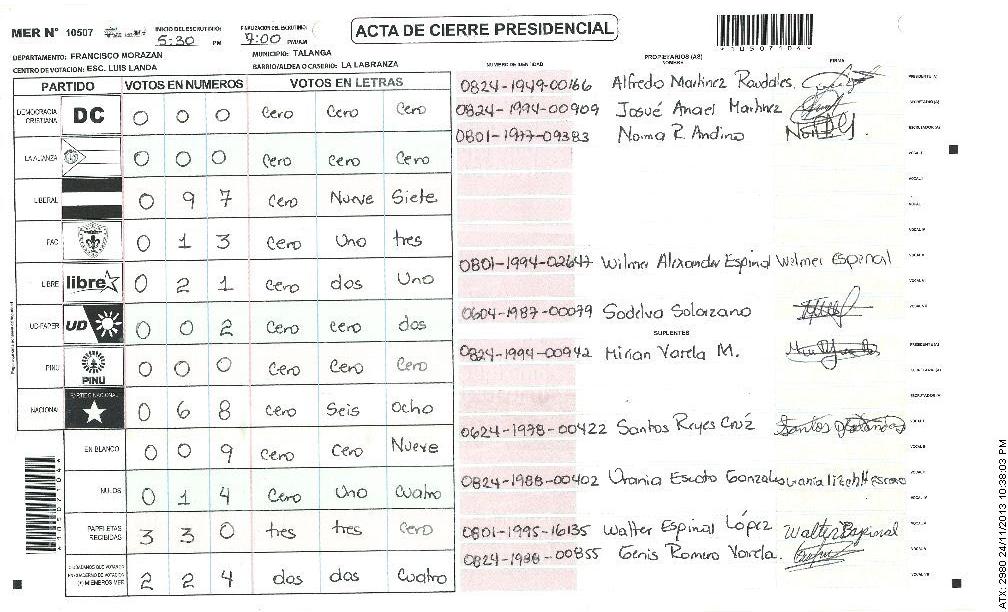 MER N° 10507
INICIO DEL ESCRUTINIO: 5:30 PM
FINALIZACION DEL ESCRUTINIO: 7:00 PM/AM
ACTA DE CIERRE PRESIDENCIAL
*10507104*
DEPARTAMENTO: FRANCISCO MORAZAN
MUNICIPIO: TALANGA
CENTRO DE VOTACION: ESC. LUIS LANDA
BARRIO/ALDEA O CASERIO: LA LABRANZA
PARTIDO VOTOS EN NUMEROS VOTOS EN LETRAS
DEMOCRACIA CRISTIANA DC 0 0 0 cero cero cero
LA ALIANZA 0 0 0 cero cero cero
LIBERAL 0 9 7 cero Nueve Siete
PAC 0 1 3 cero Uno tres
LIBRE libre 0 2 1 cero dos Uno
UD-FAPER UD 0 0 2 cero cero dos
PINU PINU 0 0 0 cero cero cero
NACIONAL PARTIDO NACIONAL 0 6 8 cero Seis ocho
EN BLANCO 0 0 9 cero cero Nueve
NULOS 0 1 4 cero Uno cuatro
PAPELETAS RECIBIDAS 3 3 0 tres tres cero
CIUDADANOS QUE VOTARON EN CUADERNO DE VOTACION (+) MIEMBROS MER 2 2 4 dos dos cuatro
NUMERO DE IDENTIDAD
PROPIETARIOS (AS)
NOMBRE
FIRMA
0824-1949-00166 Alfredo Martinez Raudales PRESIDENTE (A)
0824-1994-00909 Josué Anael Martinez SECRETARIO (A)
0801-1977-09383 Norma R. Andino ESCRUTADOR (A)
VOCAL I
VOCAL II
VOCAL III
VOCAL IV
0801-1994-02647 Wilmer Alexander Espinal Wilmer Espinal VOCAL V
VOCAL VI
0604-1987-00079 Sadelva Solorzano VOCAL VII
SUPLENTES
0824-1994-00942 Mirian Varela M. PRESIDENTE (A)
SECRETARIO (A)
ESCRUTADOR (A)
0624-1978-00422 Santos Reyes Cruz VOCAL I
VOCAL II
0824-1988-00402 Urania Escoto Gonzales VOCAL III
VOCAL IV
0801-1995-16135 Walter Espinal López Walter Espinal VOCAL V
0824-1988-00855 Genis Romero Varela. VOCAL VI
VOCAL VII
*10507104*
ATX: 2980 24/11/2013 10:38:03 PM